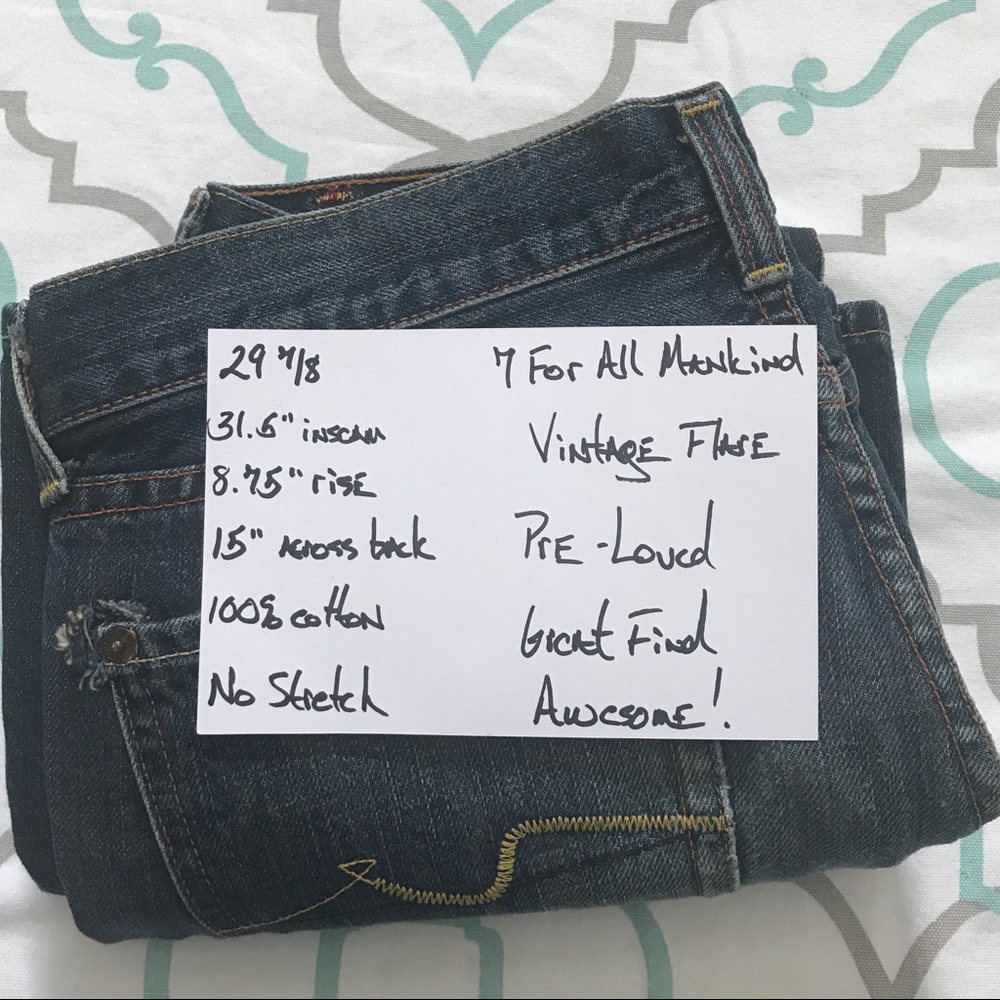 29 7/8
31.5" inseam
8.75" rise
15" across back
100% cotton
No Stretch
7 For All Mankind
Vintage Flare
Pre-Loved
Great Find
Awesome!